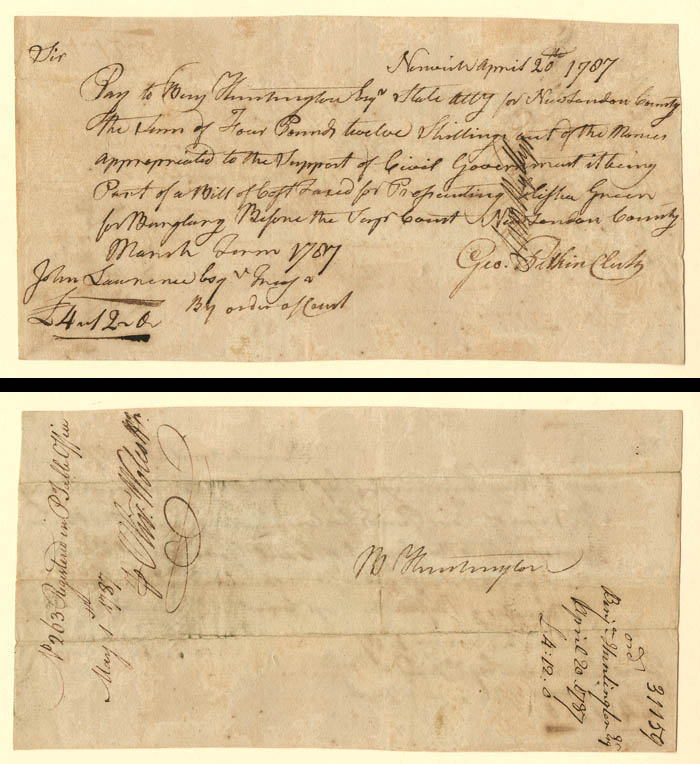 Sir
Norwich April 20th 1787
Pay to Benj Huntington Esqr State Atty for New London County
the Sum of Four Pounds twelve Shillings out of the Monies
appropriated to the Support of Civil Government it being
Part of a Bill of Cost Taxed for Prosecuting Elisha Green
for Burglary Before the Supr Court New London County
March Term 1787
Geo. Pitkin Clerk
John Lawrence Esqr Treasr
By order of Court
£4 " 12 " 0
No 263 Registered in P Table Office
May 1st 1787
Olivr Wolcott Jr
B Huntington
31159
ord
Benjn Huntington Esqr
April 20. 1787
£4:12.0